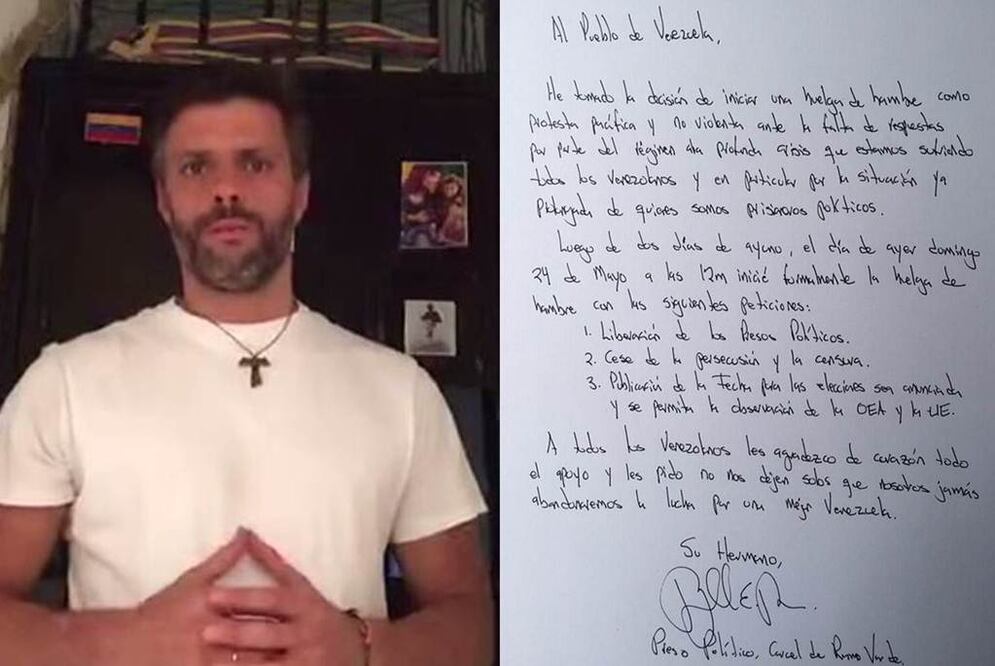 Al Pueblo de Vezuela,
He tomado la decisión de iniciar una huelga de hambre como
protesta pacífica y no violenta ante la falta de respestas
por parte del régimen ala profunda crisis que estamos sufriendo
todos los venezolanos y en particular por la situación ya
prolongada de quienes somos prisioneros políticos.
Luego de dos días de ayuno, el día de ayer domingo
24 de Mayo a las 12m inicié formalmente la huelga de
hambre con las siguientes peticiones:
1. Liberación de los Presos Políticos.
2. Cese de la persecusión y la censura.
3. Publicación de la Fecha para las elecciones sea anunciada
y se permita la observación de la OEA y la UE.
A todos los Venezolanos les agradezco de corazón todo
el apoyo y les pido no nos dejen solos que nosotros jamás
abandonaremos la lucha por una mejor Venezuela.
Su Hermano,
Preso Político, Carcel de Ramo Verde